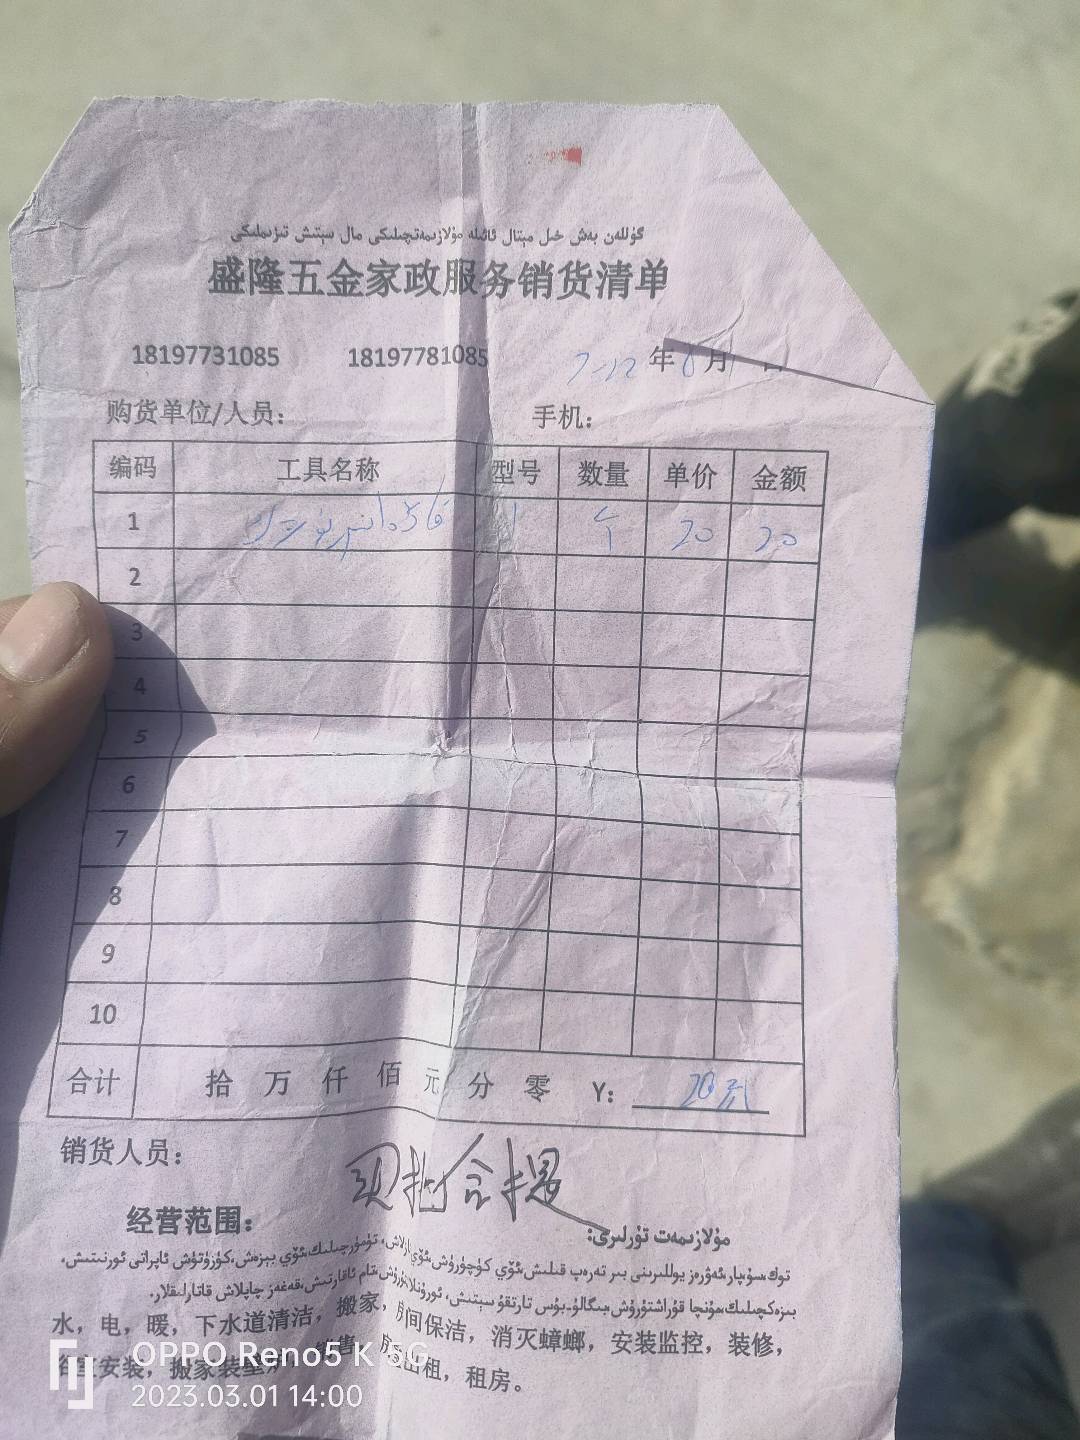 گۈللەن بەش خىل مېتال ئائىلە مۇلازىمەتچىلىكى مال سېتىش تىزىملىكى
盛隆五金家政服务销货清单
18197731085 18197781085 年 月
购货单位/人员： 手机：
编码 工具名称 型号 数量 单价 金额
1 1 个 20 20
2
3
4
5
6
7
8
9
10
合计 拾 万 仟 佰 元 分 零 Y: 20
销货人员：
经营范围： مۇلازىمەت تۈرلىرى:
توك،سۇ،پار،ئەۋرەز يوللىرىنى بىر تەرەپ قىلىش،ئۆي كۆچۈرۈش،ئۆي تۆمۈرچىلىك،ئۆي بېزەش،كۆزۈتۈش ئاپراتى ئورنىتىش،
بېزەكچىلىك،مۇنچا قۇراشتۇرۇش، سېتىش، ئاقارتىش،قەغەز چاپلاش قاتارلىقلار.
水，电，暖，下水道清洁，搬家，房间保洁，消灭蟑螂，安装监控，装修，
安装，搬家装 售 出租，租房。
OPPO Reno5 K 5G
2023.03.01 14:00